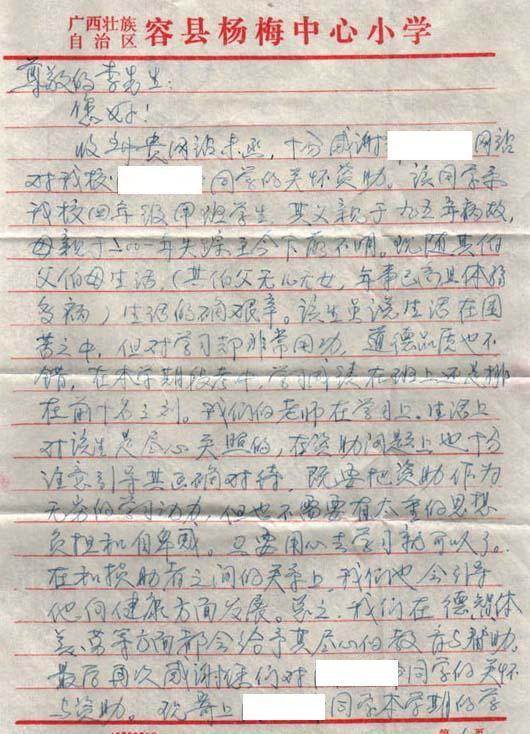 广西壮族
自治区 容县杨梅中心小学
尊敬的李先生：
您好！
收到贵网站来函，十分感谢 网站
对我校 同学的关怀资助。该同学系
我校四年级甲班学生 其父亲于九五年病故，
母亲于二00一年失踪至今下落不明。现随其伯
父伯母生活，（其伯父无儿无女，年事已高且体弱
多病）生活的确艰辛。该生虽说生活在困
苦之中，但对学习却非常用功，道德品质也不
错，在本学期段考中，学习成绩在班上还是排
在前十名之列。我们的老师在学习上、生活上
对该生是尽心关照的，在资助问题上也十分
注意引导其正确对待，既要把资助作为
无穷的学习动力，但也不需要有太重的思想
负担和自卑感。只要用心去学习就可以了。
在和捐助者之间的关系上，我们也会引导
他向健康方面发展。总之，我们在德智体
美、劳等方面都会给予其尽心的教育与帮助。
最后再次感谢你们对 同学的关怀
与资助。现寄上 同学本学期的学